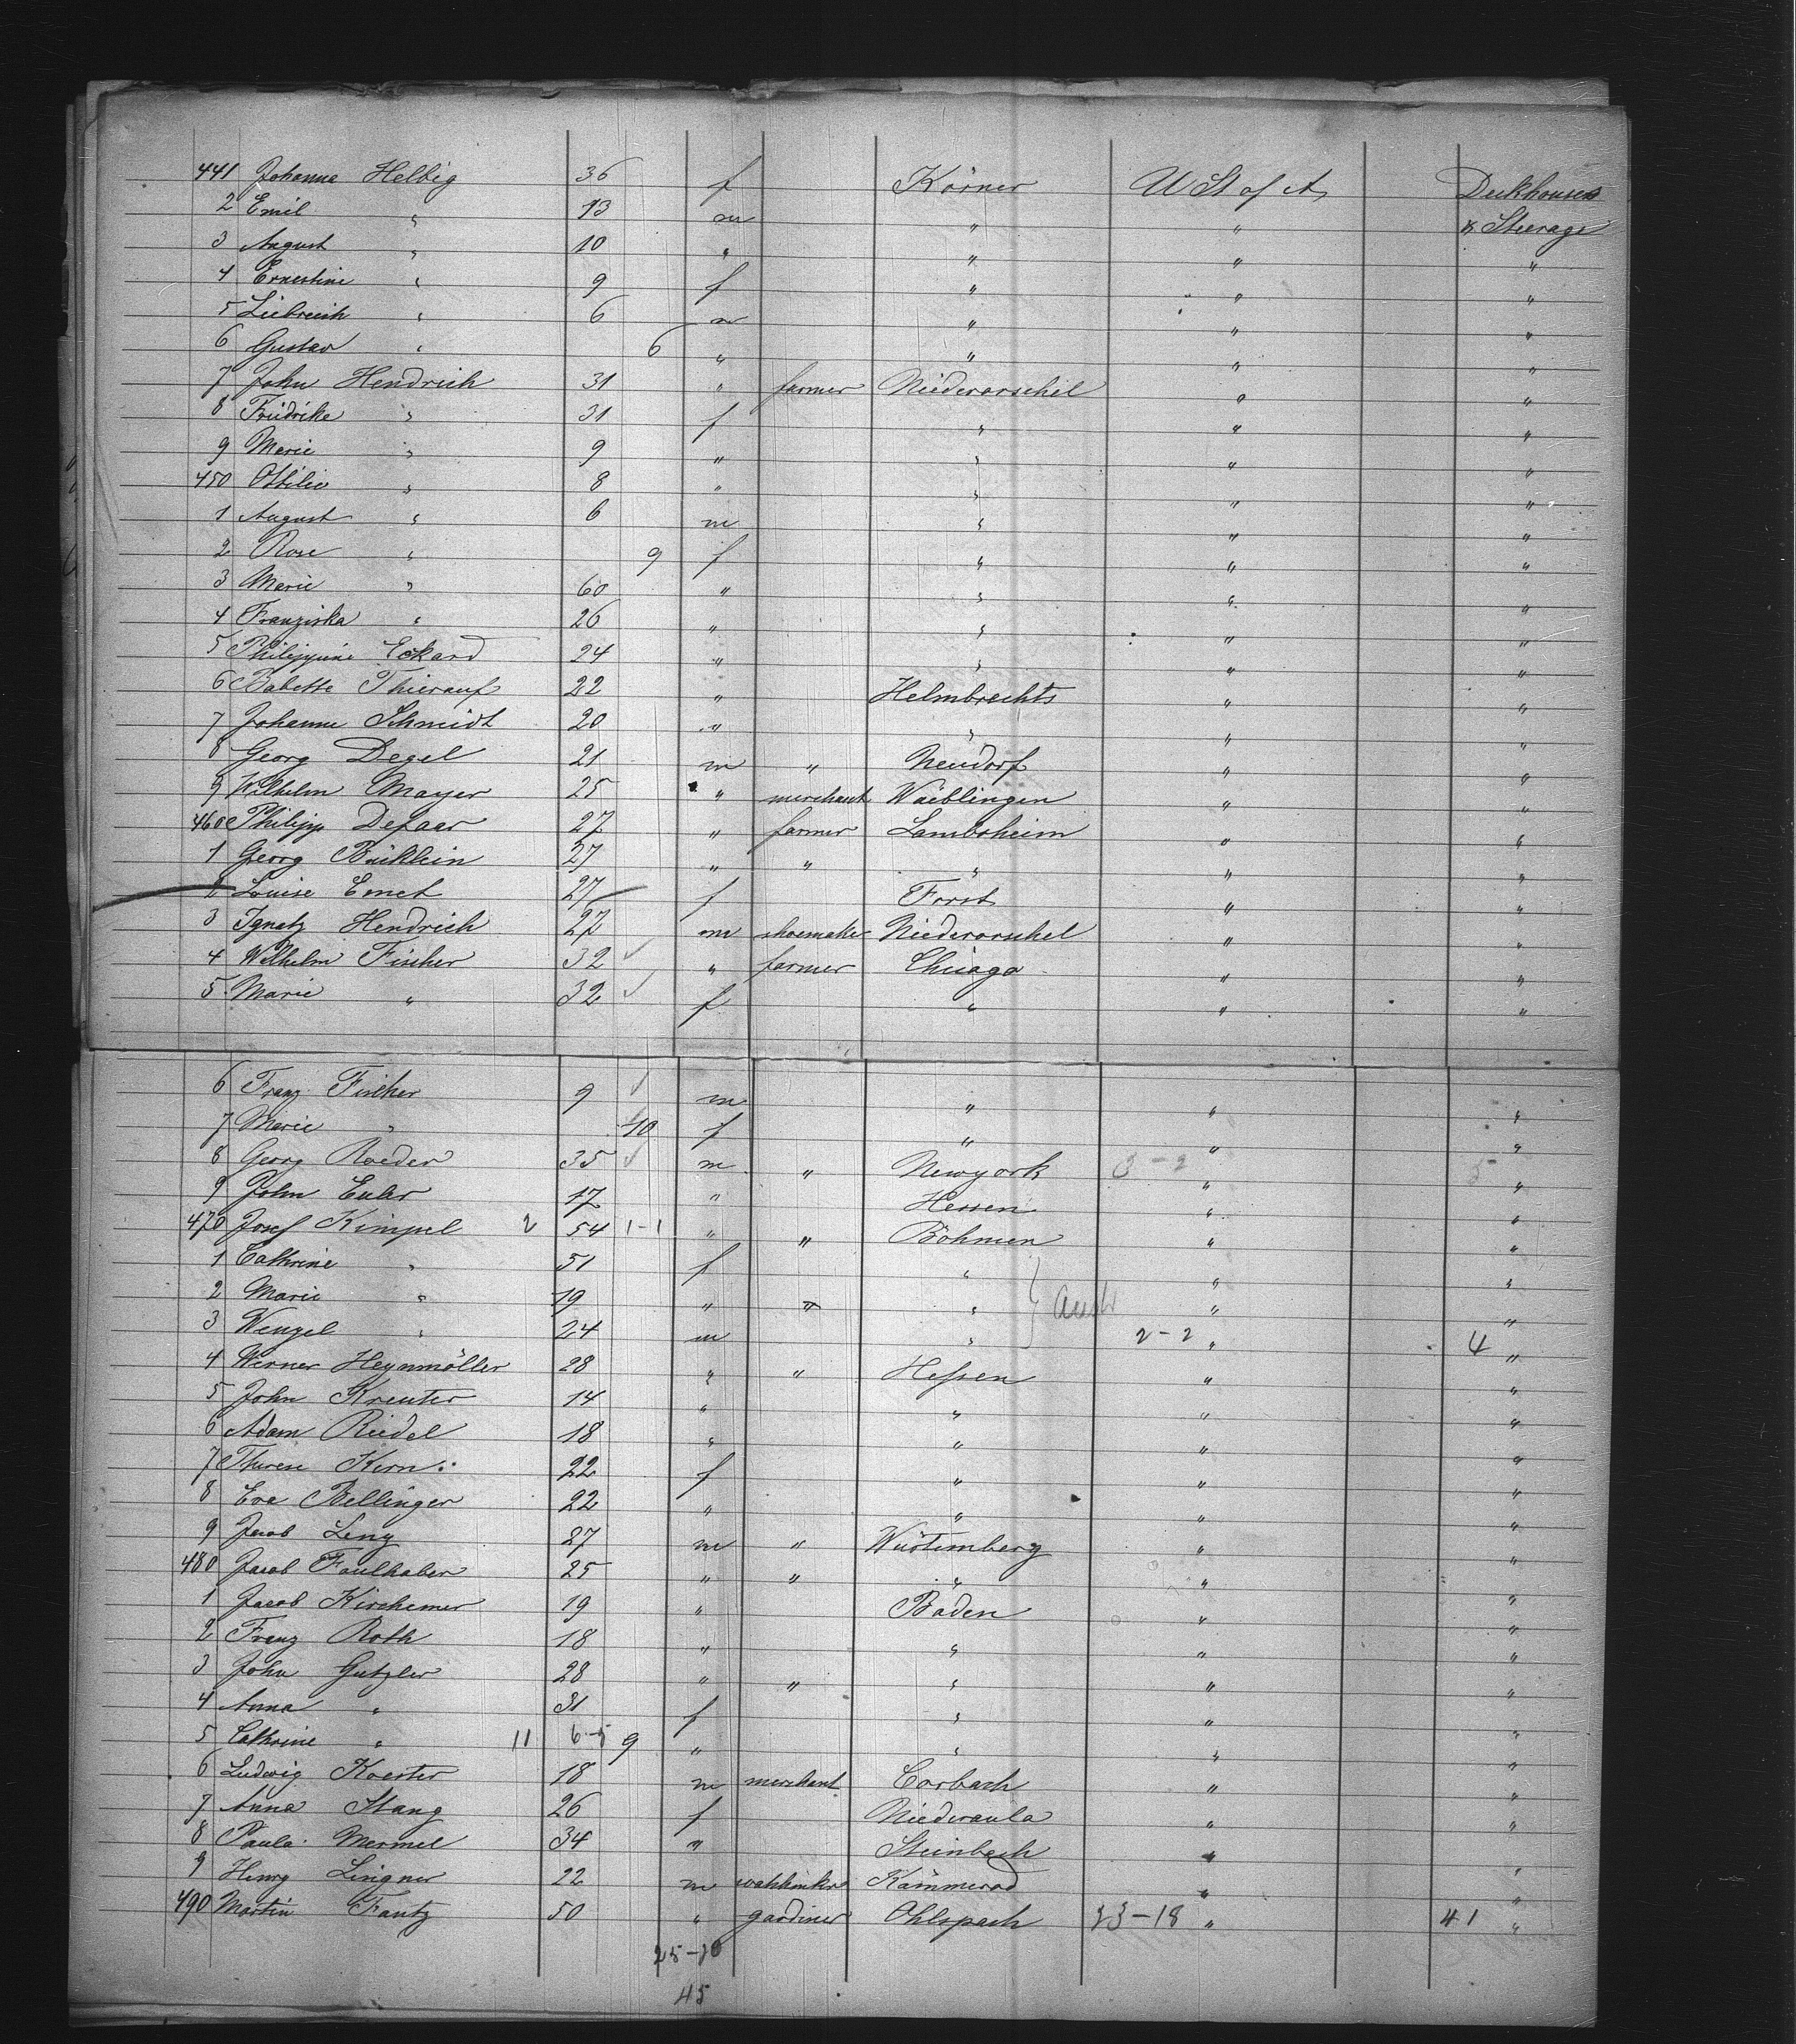 441 Johanna Helbig 36 f Körner U St of A Deckhouses
2 Emil " 13 m " " & Steerage
3 August " 10 " " " "
4 Ernestine " 9 f " " "
5 Liebreich " 6 m " " "
6 Gustav " 6 " " " "
7 John Hendrich 31 " farmer Niederorschel " "
8 Friedrike " 31 f " " "
9 Marie " 9 " " " "
450 Ottilie " 8 " " " "
1 August " 6 m " " "
2 Rose " 9 f " " "
3 Marie " 60 " " " "
4 Franziska " 26 " " " "
5 Philippine Eckard 24 " " " "
6 Babette Thierauf 22 " Helmbrechts " "
7 Johanne Schmidt 20 " " " "
8 Georg Degel 21 m " Neudorf " "
9 Wilhelm Mayer 25 " merchant Waiblingen " "
460 Philipp Defaar 27 " farmer Lambsheim " "
1 Georg Bücklein 27 " " " " "
2 Louise Emet 27 f Forst " "
3 Ignatz Hendrich 27 m shoemaker Niederorschel " "
4 Wilhelm Fischer 32 ✓ " farmer Chicago " "
5 Marie " 32 ✓ f " " "
6 Franz Fischer 9 ✓ m " " "
7 Marie " 10 f " " "
8 Georg Roeder 35 ✓ m " Newyork 3-2 " 5 "
9 John Euler 17 " Hessen " "
470 Josef Kimpel 2 54 1-1 " " Böhmen " "
1 Cathrine " 51 f " " "
2 Marie " 19 " " " Aust " "
3 Wenzel " 24 m " 2-2 " 4 "
4 Werner Heynmöller 28 " " Hessen " "
5 John Kreuter 14 " " " "
6 Adam Riedel 18 " " " "
7 Therese Kern 22 f " " "
8 Eva Bellinger 22 " " " "
9 Jacob Leng 27 m " Würtemberg " "
480 Jacob Faulhaber 25 " " " " "
1 Jacob Kirchemer 19 " Baden " "
2 Franz Roth 18 " " " "
3 John Gutzler 28 " " " " "
4 Anna " 31 f " " "
5 Cathrine " 11 6-5 9 " " " "
6 Ludwig Koester 18 m merchant Corbach " "
7 Anna Stang 26 f Niederaula " "
8 Paula Mermel 34 " Steinbach " "
9 Henry Lingner 22 m Kammerod " "
490 Martin Fautz 50 " gardiner Ohlspach 23-18 " 41 "
25-20
45